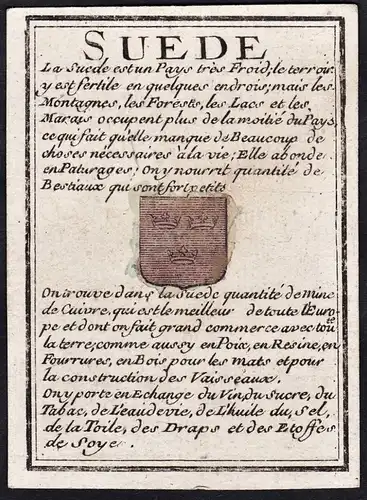 SUEDE
La Suede est un Pays très Froid; le terroir
y est fertile en quelques endrois; mais les
Montagnes, les Forests, les Lacs et les
Marais occupent plus de la moitié du Pays
ce qui fait qu'elle manque de Beaucoup de
choses nécessaires à la vie; Elle abonde
en Paturages; On y nourrit quantité de
Bestiaux qui sont fort petits
On trouve dans la Suede quantité de mine
de Cuivre, qui est le meilleur de toute l'Euro-
pe et dont on fait grand commerce avec toute
la terre; comme aussy en Poix, en Resine, en
Fourrures, en Bois pour les mats et pour
la construction des Vaisseaux.
On y porte en Echange du Vin, du Sucre, du
Tabac, de L'eau de vie, de L'huile du Sel,
de la Toile, des Draps et des Etoffes
de Soye.